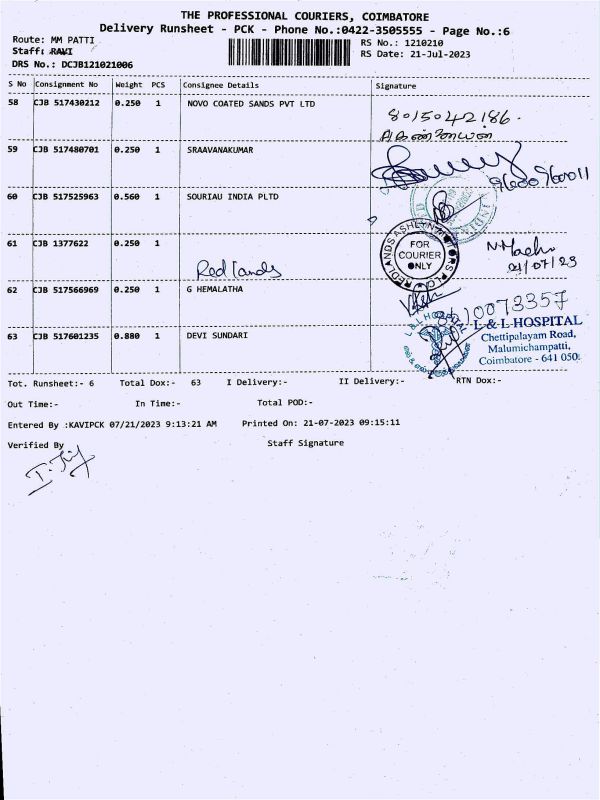 THE PROFESSIONAL COURIERS, COIMBATORE
Delivery Runsheet - PCK - Phone No.:0422-3505555 - Page No.:6
Route: MM PATTI
RS No.: 1210210
Staff: RAVI
RS Date: 21-Jul-2023
DRS No.: DCJB121021006
S No Consignment No Weight PCS Consignee Details Signature
58 CJB 517430212 0.250 1 NOVO COATED SANDS PVT LTD
8015042186.
59 CJB 517480701 0.250 1 SRAAVANAKUMAR
9600960011
60 CJB 517525963 0.560 1 SOURIAU INDIA PLTD
61 CJB 1377622 0.250 1
REDLANDS ASHLYN MOTORS
FOR
COURIER
ONLY
Redlands
21/07/23
62 CJB 517566969 0.250 1 G HEMALATHA
L & L HOSPITAL
L & L HOSPITAL
Chettipalayam Road,
Malumichampatti,
Coimbatore - 641 050.
63 CJB 517601235 0.880 1 DEVI SUNDARI
Tot. Runsheet:- 6 Total Dox:- 63 I Delivery:- II Delivery:- RTN Dox:-
Out Time:- In Time:- Total POD:-
Entered By :KAVIPCK 07/21/2023 9:13:21 AM Printed On: 21-07-2023 09:15:11
Verified By Staff Signature